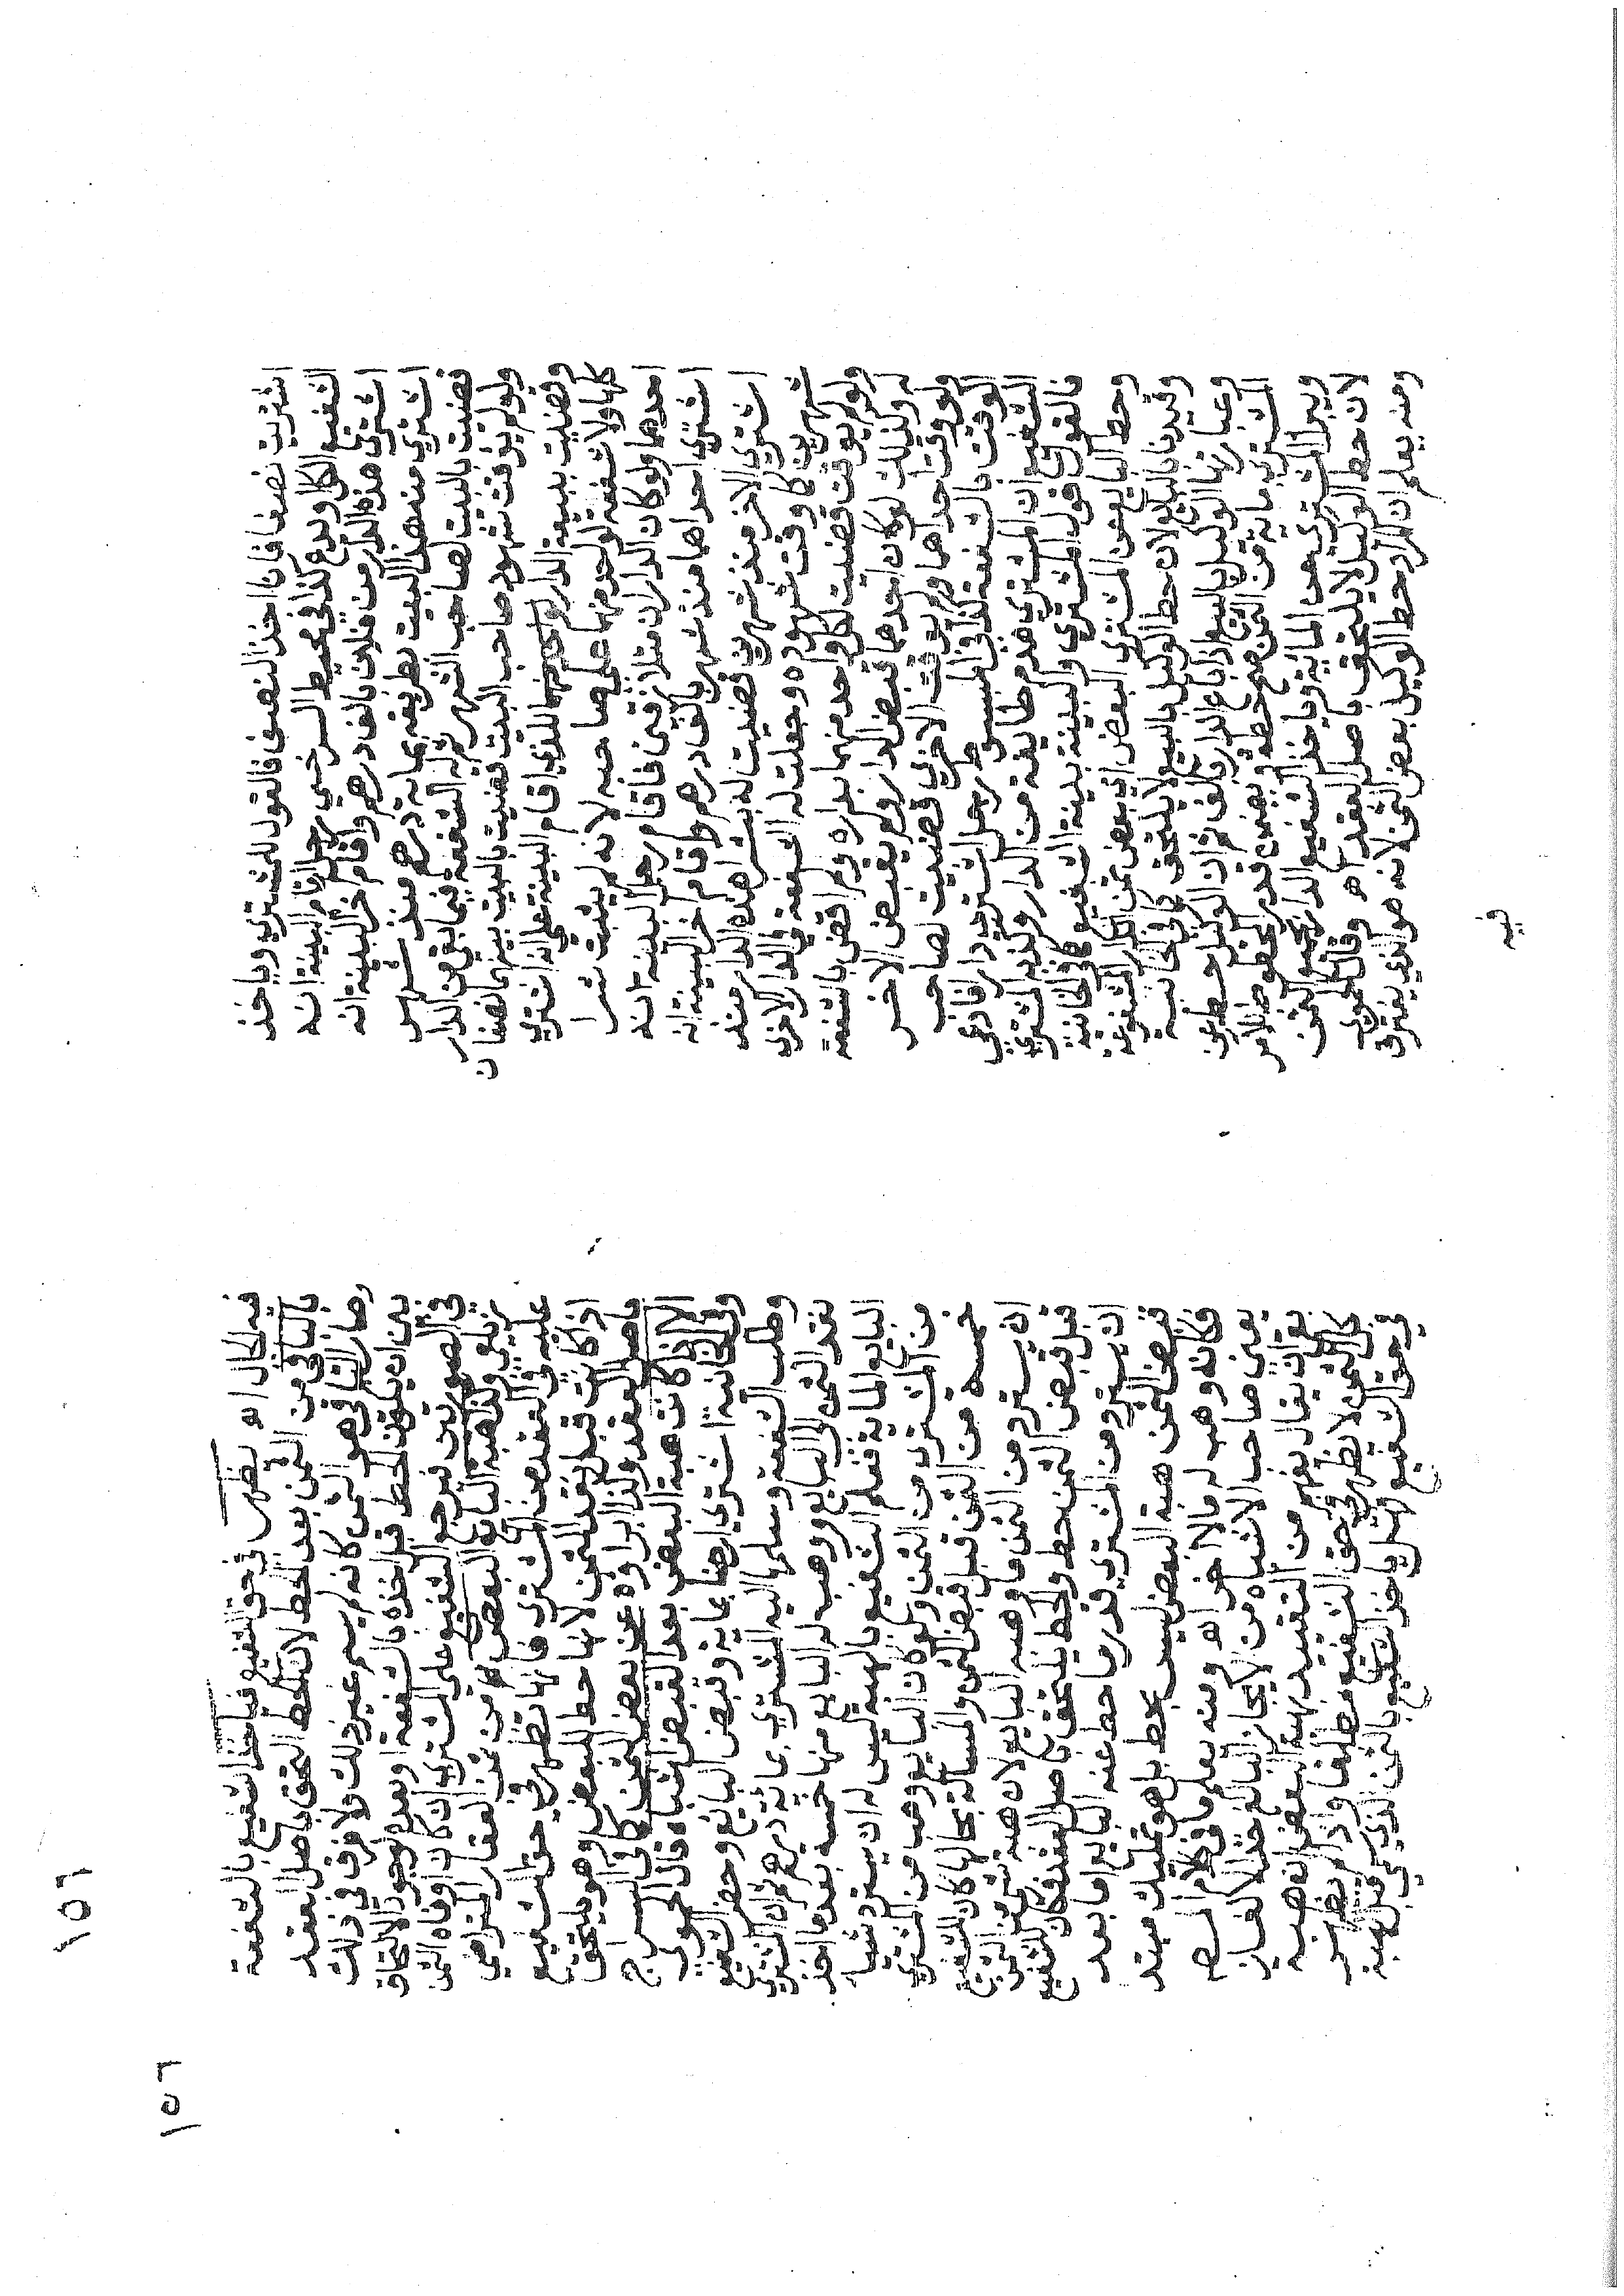 اشتريت نصفا فانا اخذ النصف فالقول للمشتري وياخذ
الشفيع الكل او يدع كذا في محيط السرخسي رجل اقام البينة انه
اشتري هذه الدار من فلان بالف درهم واقام اخر البينة انه
اشتري منه هذا البيت بطريقه بماية درهم منذ شهر
قضيت بالبيت لصاحب الشهر وله الشفعة فيما بقي من الدار
ولو لم يوقت شهود صاحب البيت قضيت بالبيت بينهما نصفان
وقضيت ببقية الدار للذي اقام البينة علي انه اشتري
كلها ولا شفعة لواحد منهما علي صاحبه لانه لم يثبت شرا
احدهما ولو كان الداران متلازقين فاقام رجل البينة انه
اشتري احداهما منذ شهر بالف درهم واقام اخر البينة انه
اشتري الاخر منذ شهرين قضيت له بشرا هذه الدار منذ
شهرين كما وقت شهوده وجعلت له الشفعة في الدار الاخري
ولو لم يوقت قضيت لكل واحد منهما بداره ولم اقض بالشفعة
له وكذلك لو كان احدهما قبض الدار ولم يقبض الاخر
ولو وقت احداهما ولم يوقت الاخري قضيت لصاحب
الوقت بالشفعة كذا في المبسوط رجل اشتري دارا فادعي
الشفيع ان المشتري هدم طايفة من الدار وكذبه المشتري
فالقول قول المشتري والبينة بينة الشفيع كما في الخانية
وحط البايع عن المشتري البعض اي بعض ثمن العقار المشفوعة
وقيدنا بالبايع لان حط الوكيل بالبيع لا يلتحق كما في الخانية
وعبارتها الوكيل بالبيع اذا باع الدار بالف ثم ان الوكيل حط عن
المشتري ماية من الثمن صح حطه ويضمن قدر المحطوط للامر
ويبرا المشتري عن الماية وياخذ الشفيع الدار بجميع الثمن
لان حط الوكيل لا يلتحق باصل العقد اه وقال الحموي
ومنه يعلم ان المراد حط الوكيل بعض الثمن لانه هو الذي يفترق
فيه
١٥٦
١٥٦
فيه الحال اه يظهر في حق الشفيع فياخذ الشفيع بالشفعة
بالباقي من الثمن بعد الحط لان الحط التحق باصل العقد
وصار الباقي هو الثمن كانه لم يسم غير ذلك ولا فرق في ذلك
بين ان يكون الحط قبل اخذه بالشفعة او بعده لوجود الالتحاق
في الصورتين فيرجع الشفيع علي المشتري ان كان اوفاه الثمن
زيلعي وكذا هبة البايع البعض من ثمن العقار المتراضي
عليه في العقد من المشتري فانها تظهر في حق الشفيع
اذا كانت قبل نقد الثمن لانها حط للبعض وهو يلتحق
باصل العقد وكذا ابراوه عن بعض الثمن كما في السراج
الا اذا كانت هبة البعض بعد القبض اشباه قال الحموي
وفي الخانية اشتري ارضا بماية وقبض البايع وحضر الشفيع
وطلب الشفعة وسلمها اليه المشتري بماية درهم ثم ان المشتري
نقد الثمن الي البايع ووهب له البايع منها خمسة بعد ما اخذ
البايع الماية فعلم الشفيع بالهبة ليس له ان يسترد شيا
من المشتري من الثمن ولو كان البايع وهب من المشتري
خمسة من الثمن قبل قبض الثمن والمسالة بحالها كان للشفيع
ان يسترد من الثمن ما وهبه البايع لان هبة شي من الثمن
قبل قبض الثمن حط والحط يلتحق باصل العقد فكان للشفيع
ان يسترد من المشتري قدر ما حط عنه البايع اما بعد
قبض الثمن هبة البعض ليس بحط بل هو تمليك مبتد
فكانه وهب له مالا اخر اه ومنه يعلم ما في كلام المص
يعني صاحب الاشباه من الايجاز البالغ حد الالغاز
بقي ان يقال يفهم من التقييد بهبة البعض ان هبة
كل الثمن لا تظهر في حق الشفيع مطلقا واذا لم يظهر
في حق الشفيع فهل ياخذ الشفيع بالثمن الذي سمي قبل الهبة